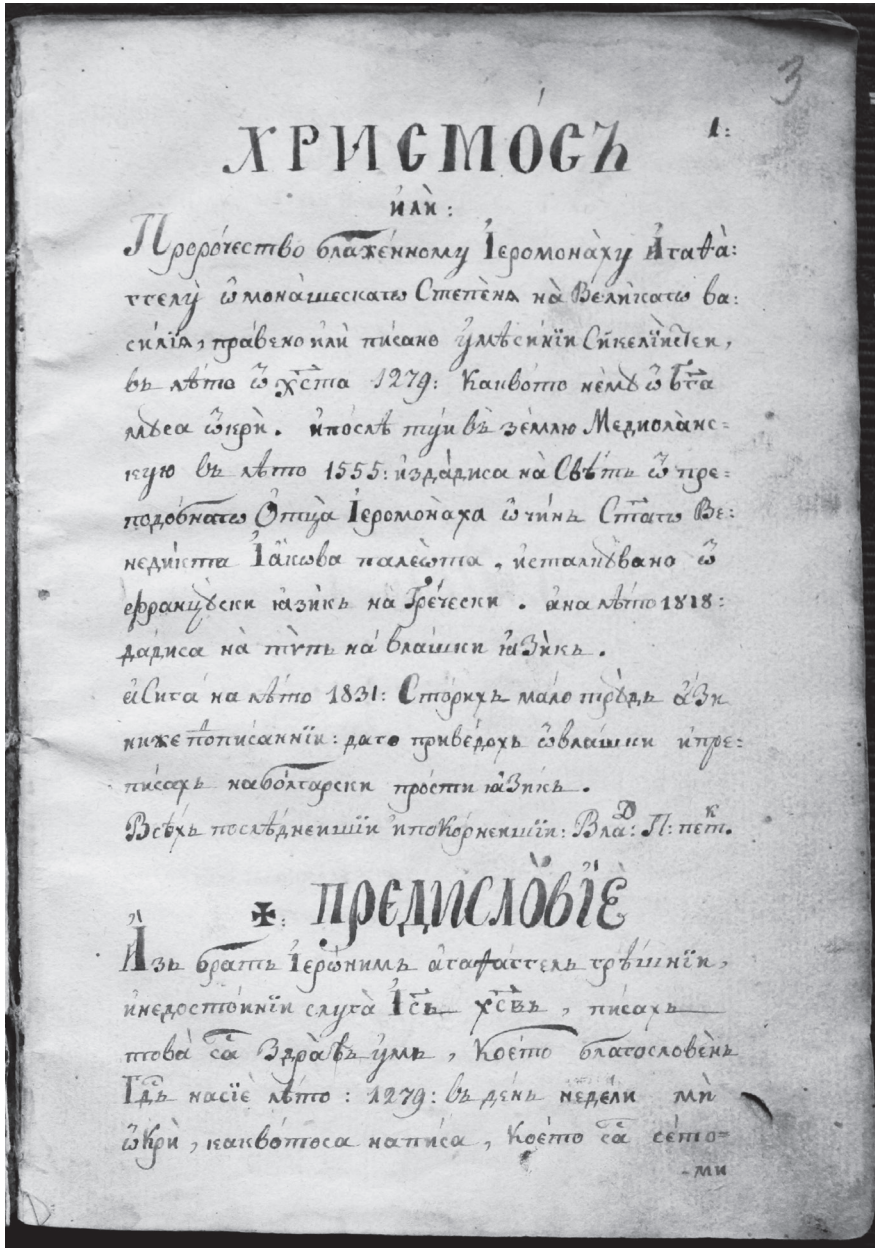 3
1:
ХРИСМО́СЪ
и҆лѝ:
Проро́чество блаже́нному І҆еромона́ху А҆гаѳа̀:
ггелꙋ̀ ѿ мона́шескатѡ Степѐнѧ на̀ Вели́катѡ ва:
си́лїѧ, пра́вено и҆лѝ писано у҆ мѣси́нїи Си́келїйстей,
въ лѣ́то ѿ хрⷭ҇та 1279: Какво́то не́мꙋ ѿ бг҃а
мꙋса ѿкрѝ. и҆ по́слѣ тꙋ́и въ̀ зе́млю Медиола̀нс=
кую въ лѣ́то 1555: и҆зда́диса на̀ Свѣ́тъ ѿ пре=
подо́бнатѡ Ѻ҆тца̀ І҆еромона̀ха ѿ чи́нъ Ст҃а́тѡ Ве:
неди́кта І҆а́кѡва палеѡ́та, и҆сталкꙋ́вано ѿ
францꙋ́ски ꙗ҆зи́къ на̀ Гре́чески. а҆ на лѣ́то 1818:
да́диса на̀ тꙋ̀пъ на̀ вла́шки ꙗ҆Зѝкъ.
а҆ Сига̀ на лѣ́то 1831: Сто́рихъ ма́ло трꙋ́дъ а҆́зи
ниже попи́саннїи: дато приведо́хъ ѿ вла́шки и҆ пре:
пи́сахъ на бо́лгарски про́сти ꙗ҆Зи́къ.
Всѣ́хъ послѣ́днеишїи и҆ поко́рнеишїи: Влаⷣ: П: петⷦ.
✠: ПРЕДИСЛО́ВЇЕ
А҆́зъ бра́тъ І҆ерѡ́нимъ а҆гаѳа́ггелъ грѣ́шнїи,
и҆ недосто́йнїи слуга̀ І҆с҃ъ хс҃въ, писахъ
това̀ са҃ Здра́въ у҆́мъ, Кое́то благословѐнъ
Гдⷭ҇ь на сїѐ лѣ́то: 1279: въ де́нь недели мѝ
ѿкрѝ, какво́тоса напи́са, Кое́то са҃ се́то=
-ми